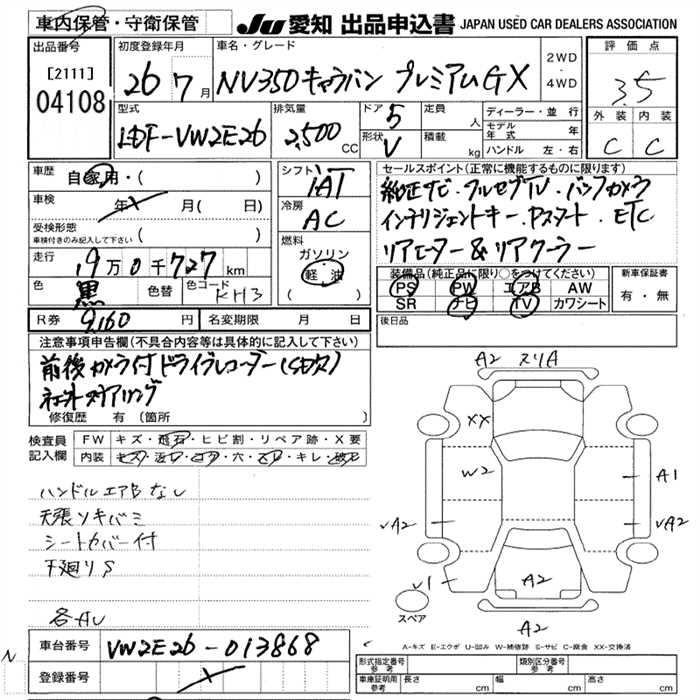 車内保管・守衛保管
JU 愛知 出品申込書 JAPAN USED CAR DEALERS ASSOCIATION
出品番号 初度登録年月 車名・グレード 評価点
[2111]
04108
26 7月 NV350キャラバン プレミアムGX
2WD
・
4WD
3.5
型式 排気量 ドア 5 定員 人 ディーラー・並行 外装 内装
LDF-VW2E26 2,500 CC 形状 V 積載 kg モデル年式 年
ハンドル 左・右 C C
車歴 自家用・( )
シフト IAT
セールスポイント(正常に機能するものに限ります)
車検 年 月( 日)
冷房 AC
純正ナビ.フルセグTV.バックカメラ
受検形態
車検付きのみ記入して下さい ( )
インテリジェントキー.Pスタート.ETC
燃料 ガソリン
軽油
( )
リアヒーター&リアクーラー
走行 19万0千727km
装備品(純正品に限り○をつけてください) 新車保証書
色 黒 色替 色コード KH3
PS PW エアB AW 有・無
SR ナビ TV カワシート
R券 9,160円 名変期限 月 日
後日品
注意事項申告欄(不具合内容等は具体的に記入して下さい)
前後カメラ付ドライブレコーダー(SD欠)
社外ステアリング
修復歴 有(箇所 )
検査員 FW キズ・飛石・ヒビ割・リペア跡・X要
記入欄 内装 キズ・汚レ・コゲ・穴・スレ・キレ・破レ
ハンドルエアBなし
天張ソキバミ
シートカバー付
下廻りS
各AU
A2 ヌリA
XX
W2 A1
✓A2 ✓A2
✓1 A2
スペア
A2
A-キズ E-エクボ U-凹み W-補修跡 S-サビ C-腐食 XX-交換済
車台番号 VW2E26-013868
N 登録番号
形式指定番号
参考
類別区分番号
参考
車庫証明用
参考
長さ cm 幅 cm 高さ cm